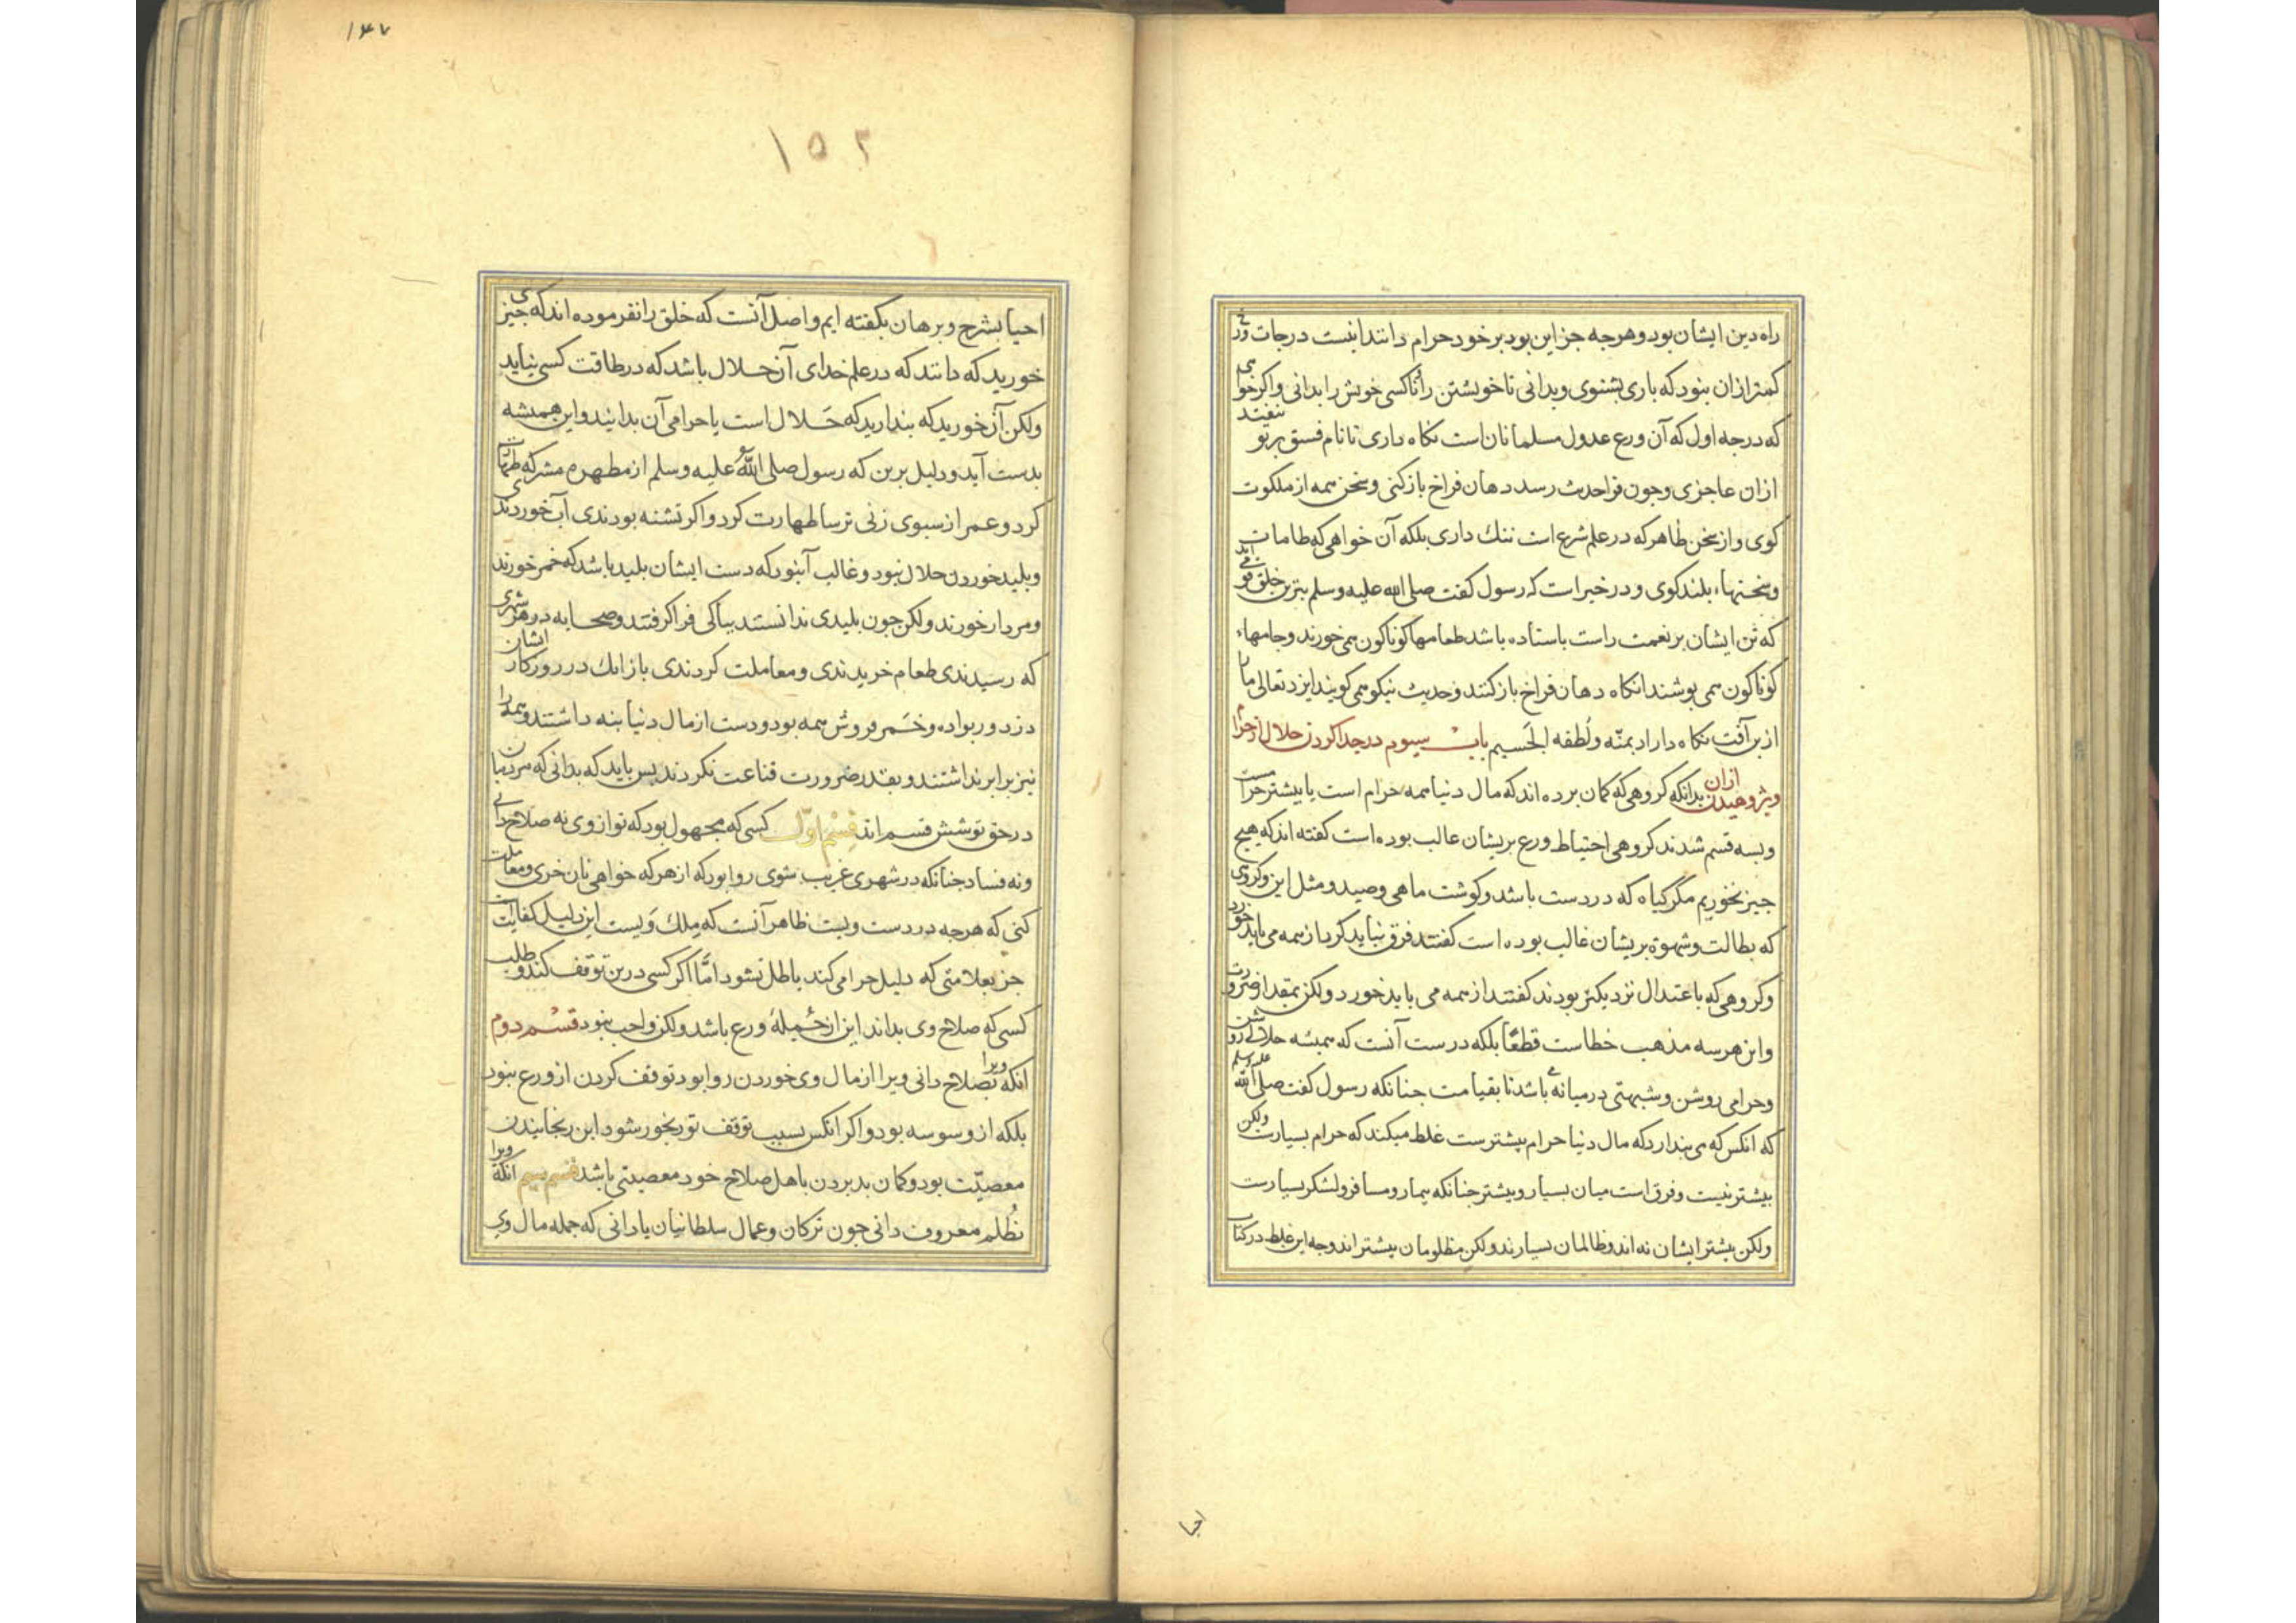 راه دین ایشان بود و هرجه جز این بود بر خود حرام دانند اینست درجات ورع
کمتر ازان نبود که باری بشنوی و بدانی تا خویشتن را ناکسی خویش را بدانی و اکر خواهی
که درجه اول که آن ورع عدول مسلمانان است نکاه داری تا نام فسق بر تو نیفتد
ازان عاجزی و جون فراحدیث رسد دهان فراخ بازکنی و سخن همه از ملکوت
کوی و از سخن ظاهر که در علم شرع است ننک داری بلکه آن خواهی که طامات
و سخنهاء بلند کوی و در خبر است که رسول کفت صلی الله علیه وسلم بترین خلق قومی اند
که تن ایشان بر نعمت راست باستاده باشد طعامها کوناکون همی خورند و جامهاء
کوناکون همی بوشند انکاه دهان فراخ بازکنند و حدیث نیکو همی کویند ایزد تعالی ما را
ازین آفت نکاه داراد بمنّه و لُطفه الجَسیم باب سیوم در جدا کردن حلال از حرام
و بژوهیدن ازان بدانکه کروهی که کمان برده اند که مال دنیا همه حرام است یا بیشتر حرامست
و بسه قسم شدند کروهی احتیاط و ورع بریشان غالب بوده است کفته اند که هیج
جیز نخوریم مکر کیاه که در دست باشد و کوشت ماهی و صید و مثل این و کروهی
که بطالت و شهوة بریشان غالب بوده است کفتند فرق نباید کرد از همه می باید خورد
و کروهی که باعتدال نزدیکتر بودند کفتند از همه می باید خورد ولکن بمقدار ضرورت
و این هرسه مذهب خطاست قطعًا بلکه درست آنست که همیشه حلالی روشن
و حرامی روشن و شبهتی درمیانه باشد تا بقیامت جنانکه رسول کفت صلی الله علیه وسلم
که انکس که می بندارد که مال دنیا حرام بیشترست غلط میکند که حرام بسیارست ولکن
بیشتر نیست و فرق است میان بسیار و بیشتر جنانکه بیمار و مسافر و لشکر بسیارست
ولکن بیشتر ایشان نه اند و ظالمان بسیارند ولکن مظلومان بیشتراند و جه این غلط در کتاب
احیا
۱۴۷
۱۵۲
احیا بشرح و برهان بکفته ایم و اصل آنست که خلق را نفرموده اند که جیزی
خورید که دانند که در علم خدای آن حلال باشد که در طاقت کسی نیاید
ولکن آن خورید که بندارید که حَلال است یا حرامی آن بدانیند و این همیشه
بدست آید و دلیل برین که رسول صلی الله علیه وسلم از مطهره مشرکه طهارت
کرد و عمر از سبوی زنی ترسا طهارت کرد و اکر تشنه بودندی آب خوردندی
و بلید خوردن حلال نبود و غالب آن بود که دست ایشان بلید باشد که خمر خورند
و مردار خورند ولکن جون بلیدی ندانستند بباکی فراکرفتند و صحابه در هر شهری
که رسیدندی طعام خریدندی و معاملت کردندی بازانک در روزکار ایشان
دزد و ربواده و خَمر فروش همه بود و دست از مال دنیا بنه داشتند و همه را
نیز برابر نداشتند و بقدر ضرورت قناعت نکردند بس باید که بدانی که مردمان
در حق تو شش قسم اند قسم اوّل کسی که مجهول بود که تو ازوی نه صلاح دانی
و نه فساد جنانکه در شهری غریب شوی روا بود که از هرکه خواهی نان خری و معاملت
کنی که هرجه در دست ویست ظاهر آنست که مِلك وَیست این دلیل کفایت است
جز بعلامتی که دلیل حرامی کند باطل نشود امّا اکر کسی درین توقف کند و طلب
کسی که صلاح وی بداند این از جُملهٔ ورع باشد ولکن واجب نبود قسْم دوم
انکه ویرا بصلاح دانی ویرا از مال وی خوردن روا بود و توقف کردن از ورع نبود
بلکه از وسوسه بود و اکر انکس بسبب توقف تو رنجور شود این رنجانیدن
معصیّت بود و کمان بد بردن باهل صلاح خود معصیتی باشد قسم سیم انکه ویرا
بظُلم معروف دانی جون ترکان و عمال سلطانیان یا دانی که جمله مال وی